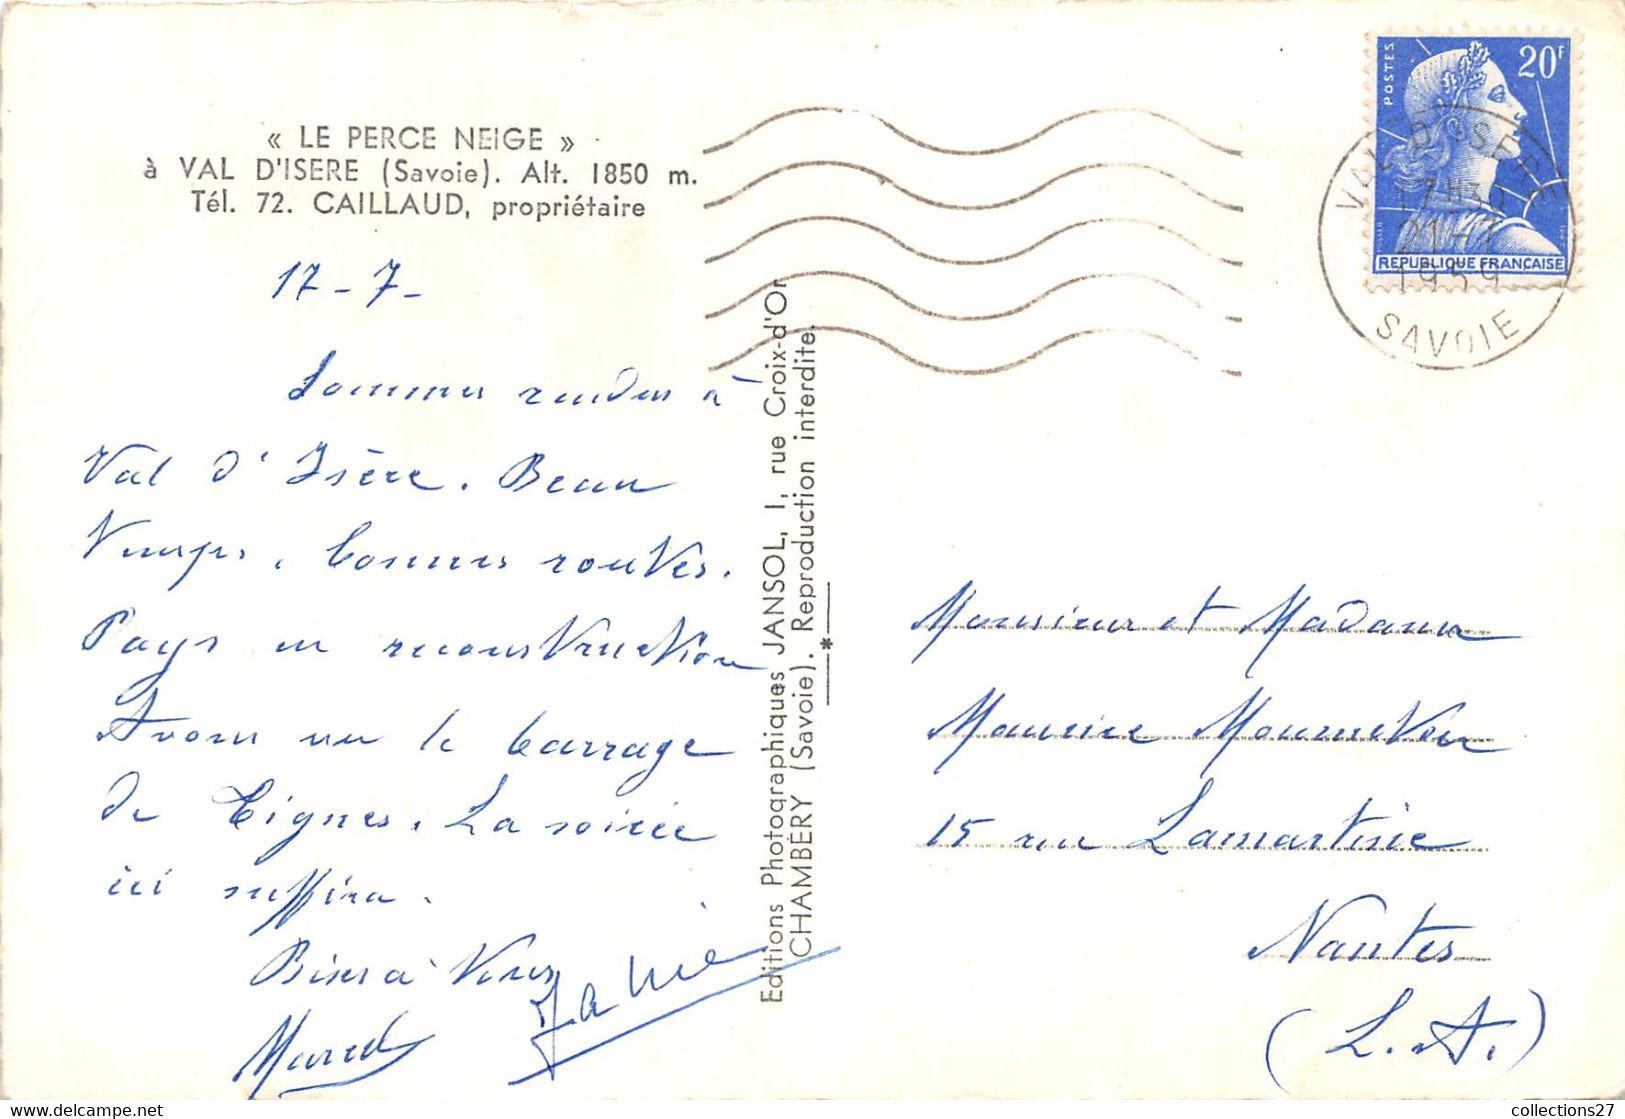 « LE PERCE NEIGE »
à VAL D'ISERE (Savoie). Alt. 1850 m.
Tél. 72. CAILLAUD, propriétaire
17-7-
Sommes rendus à
Val d'Isère. Beau
temps, bonnes routes.
Pays en reconstruction
Avons vu le barrage
de Tignes. La soirée
ici suffira.
Bises à tous
Marcel
Editions Photographiques JANSOL, 1, rue Croix-d'Or
CHAMBÉRY (Savoie). Reproduction interdite.
POSTES
20F
REPUBLIQUE FRANCAISE
VAL D'ISERE
17H30
21-7
1959
SAVOIE
Monsieur et Madame
Maurice
15 rue Lamartine
Nantes
(L.A.)
collections27